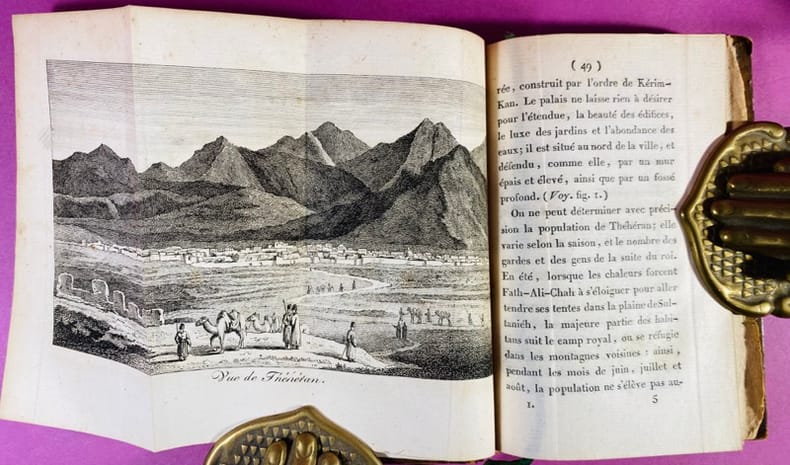 Vue de Théhéran.
( 49 )
rée, construit par l'ordre de Kérim-
Kan. Le palais ne laisse rien à désirer
pour l'étendue, la beauté des édifices,
le luxe des jardins et l'abondance des
eaux; il est situé au nord de la ville, et
défendu, comme elle, par un mur
épais et élevé, ainsi que par un fossé
profond. (Voy. fig. 1.)
On ne peut déterminer avec préci-
sion la population de Théhéran; elle
varie selon la saison, et le nombre des
gardes et des gens de la suite du roi.
En été, lorsque les chaleurs forcent
Fath-Ali-Chah à s'éloigner pour aller
tendre ses tentes dans la plaine de Sul-
taniéh, la majeure partie des habi-
tans suit le camp royal, ou se réfugie
dans les montagnes voisines : ainsi,
pendant les mois de juin, juillet et
août, la population ne s'élève pas au-
1. 5